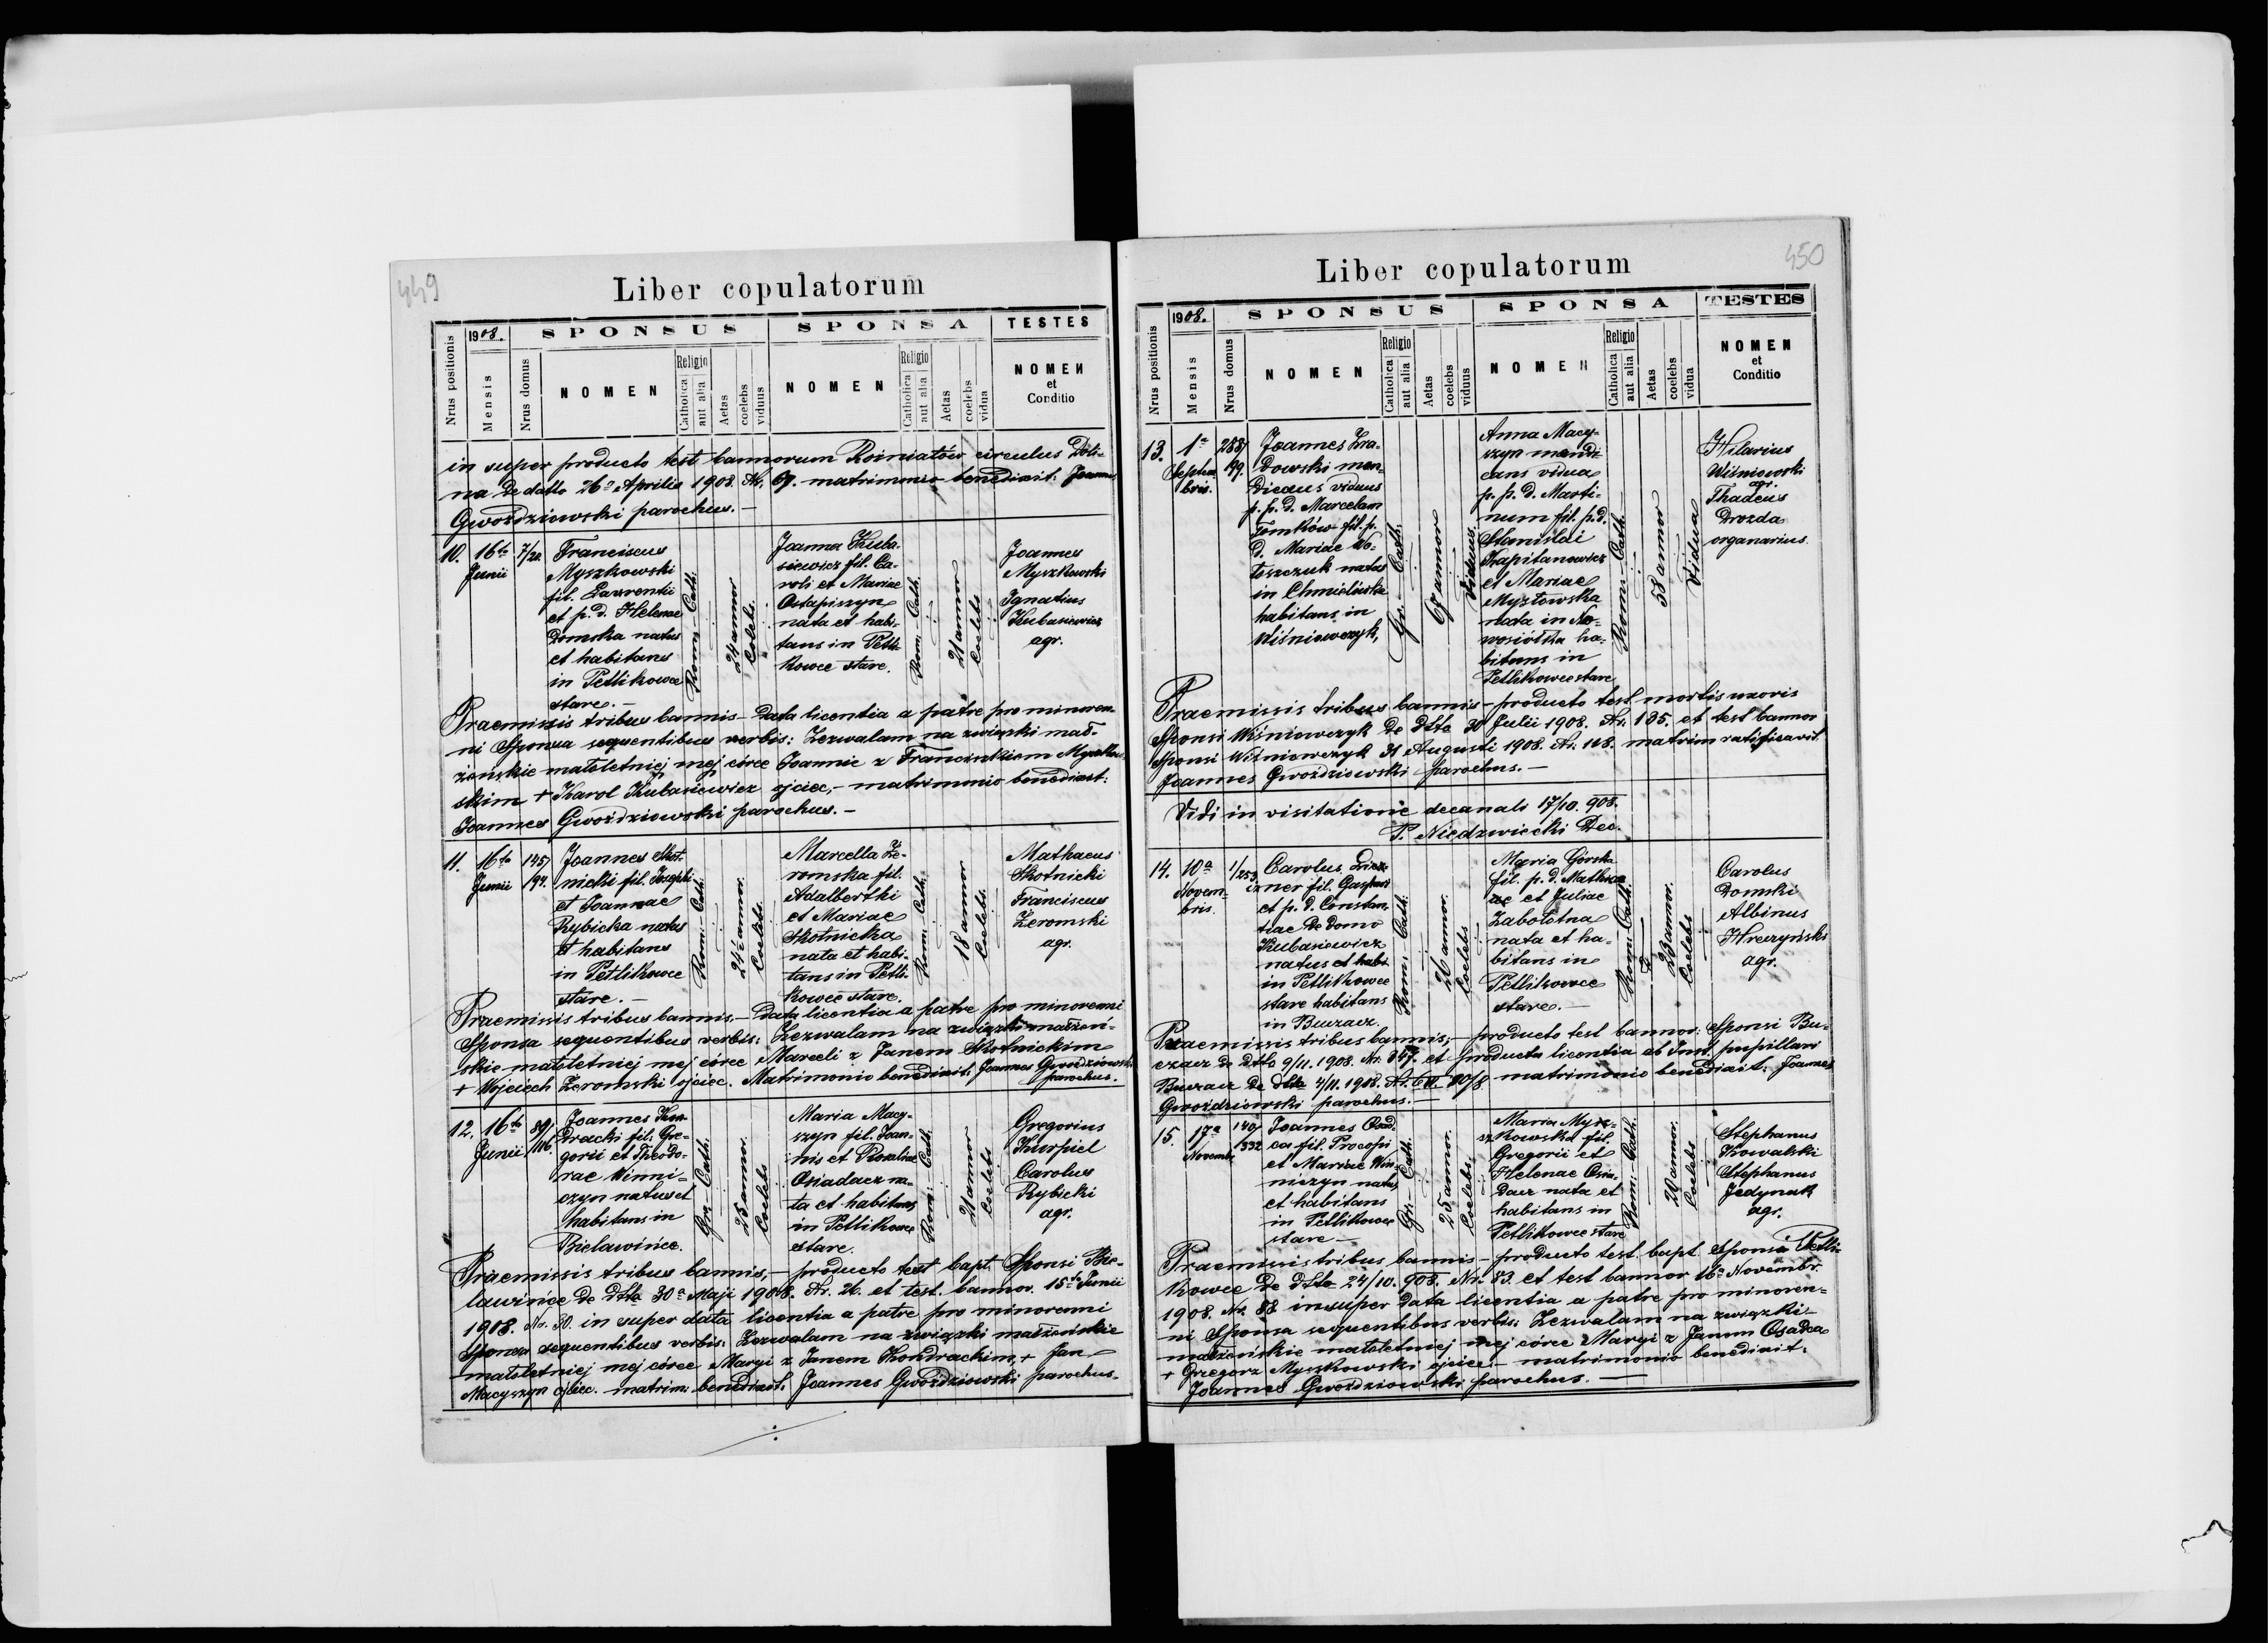 449
Liber copulatorum
Nrus positionis
1908.
Mensis
SPONSUS
Nrus domus
NOMEN
Religio
Catholica
aut alia
Aetas
coelebs
viduus
SPONSA
NOMEN
Religio
Catholica
aut alia
Aetas
coelebs
vidua
TESTES
NOMEN
et
Conditio
in super producto test bannorum Roiniatów circulus Doli-
na de datto 26a Aprilis 1908. Nr. 69. matrimonio benedixit: Joannes
Gwoździowski parochus. -
10.
16to
Junii
7/20
Franciscus
Myszkowski
fil. Laurentii
et p. d. Helenae
Domska natus
et habitans
in Petlikowce
stare. -
Rom: Cath.
24 annor
Coelebs.
Joanna Kuba-
siewicz fil. Ca-
roli et Mariae
Ostapiszyn
nata et habi-
tans in Petli-
kowce stare.
Rom: Cath.
21 annor
Coelebs
Joannes
Myszkowski
Ignatius
Kubasiewicz
agr.
Praemissis tribus bannis - data licentia a patre pro minoren-
ni Sponsa sequentibus verbis: Zezwalam na związki mał-
żeńskie małoletniej mej córce Joannie z Franciszkiem Myszkow-
skim + Karol Kubasiewicz ojciec, - matrimonio benedixit:
Joannes Gwoździowski parochus. -
11.
16to
Junii
145/
194.
Joannes Skot-
nicki fil. Josephi
et Joannae
Rybicka natus
et habitans
in Petlikowce
stare. -
Rom: Cath.
24½ annor.
Coelebs.
Marcella Że-
romska fil.
Adalberthi
et Mariae
Skotnicka
nata et habi-
tans in Petli-
kowce stare.
Rom: Cath.
18 annor
Coelebs.
Mathaeus
Skotnicki
Franciscus
Żeromski
agr.
Praemissis tribus bannis, - data licentia a patre pro minorenni
Sponsa sequentibus verbis: Zezwalam na związki małżeń-
skie małoletniej mej córce Marceli z Janem Skotnickim
+ Wojciech Żeromski ojciec. Matrimonio benedixit: Joannes Gwoździowski
parochus.
12.
16to
Junii
89/
116.
Joannes Kon-
dracki fil. Gre-
gorii et Theodo-
rae Winni-
czyn natus et
habitans in
Bielawińce.
Gr: Cath.
25 annor.
Coelebs
Maria Macy-
szyn fil. Joan-
nis et Rosaliae
Osiadacz na-
ta et habitans
in Petlikowce
stare.
Rom: Cath.
21 annor
Coelebs
Gregorius
Kurpiel
Carolus
Rybicki
agr.
Praemissis tribus bannis, - producto test bapt. Sponsi Bie-
lawińce de dtto 30a Maji 1908. Nr. 26. et test. bannor. 15to Junii
1908. Nr. 30. in super data licentia a patre pro minorenni
Sponsa sequentibus verbis: Zezwalam na związki małżeńskie
małoletniej mej córce Maryi z Janem Kondrackim, + Jan
Macyszyn ojciec. - matrim: benedixit. Joannes Gwoździowski parochus.
450
Liber copulatorum
Nrus positionis
1908.
Mensis
SPONSUS
Nrus domus
NOMEN
Religio
Catholica
aut alia
Aetas
coelebs
viduus
SPONSA
NOMEN
Religio
Catholica
aut alia
Aetas
coelebs
vidua
TESTES
NOMEN
et
Conditio
13.
1a
Septem
bris.
288/
199.
Joannes
dowski men-
dicans viduus
p. p. d. Marcelam
Tomków fil. p.
d. Mariae Wo-
toszczuk natus
in Chmielówka
habitans in
Wiśniowczyk,
Gr: Cath.
67 annor
Viduus.
Anna Macy-
szyn mendi-
cans vidua
p. p. d. Marti-
num fil. p. d.
Stanislai
Kapitanowicz
et Mariae
Mysłowska
nata in No-
wosiółka ha-
bitans in
Petlikowce stare
Rom: Cath.
58 annor
Vidua
Hilarius
Wiśniowski
agr.
Thadeus
Drozda
organarius.
Praemissis tribus bannis - producto test mortis uxoris
Sponsi Wiśniowczyk de dtto 30 Julii 1908. Nr. 185. et test bannor
Sponsi Wiśniowczyk 31 Augusti 1908. Nr. 108. matrim ratificavit.
Joannes Gwoździowski parochus. -
Vidi in visitatione decanali 17/10. 908.
P. Niedzwiecki Dec.
14.
10a
Novem-
bris.
1/253
Carolus
ner fil. Gaspari
et p. d. Constan-
tiae de domo
Kubasiewicz
natus et habi-
in Petlikowce
stare habitans
in Buczacz.
Rom: Cath.
26 annor.
Coelebs
Maria Górska
fil. p. d. Mathi-
ae et Juliae
Zabołotna
nata et ha-
bitans in
Petlikowce
stare. -
Rom: Cath.
23 annor.
Coelebs
Carolus
Domski
Albinus
Hreczyński
agr.
Praemissis tribus bannis, - producto test bannor: Sponsi Bu-
czacz de dtto 9/11. 1908. Nr. 347. et producta licentia ab Inst. pupillari
Buczacz de dtto 4/11. 1908. Nr. 90/8 matrimonio benedixit: Joannes
Gwoździowski parochus. -
15.
17a
Novembr
140/
332
Joannes Osad-
ca fil. Procopii
et Mariae Win-
niczyn natus
et habitans
in Petlikowce
stare -
Gr: Cath.
25 annor.
Coelebs.
Maria Mysz-
kowska fil.
Gregorii et
Helenae Osia-
dacz nata et
habitans in
Petlikowce stare
Rom: Cath.
20 annor.
Coelebs
Stephanus
Kowalski
Stephanus
Jedynak
agr.
Praemissis tribus bannis - producto test bapt Sponsi Petli-
kowce de dtto 24/10. 908. Nr. 83 et test bannor 16a Novembr.
1908. Nr. 88 insuper data licentia a patre pro minoren-
ni Sponsa sequentibus verbis: Zezwalam na związki
małżeńskie małoletniej mej córce Maryi z Janem Osadca
+ Grzegorz Myszkowski ojciec. - matrimonio benedixit:
Joannes Gwoździowski parochus. -